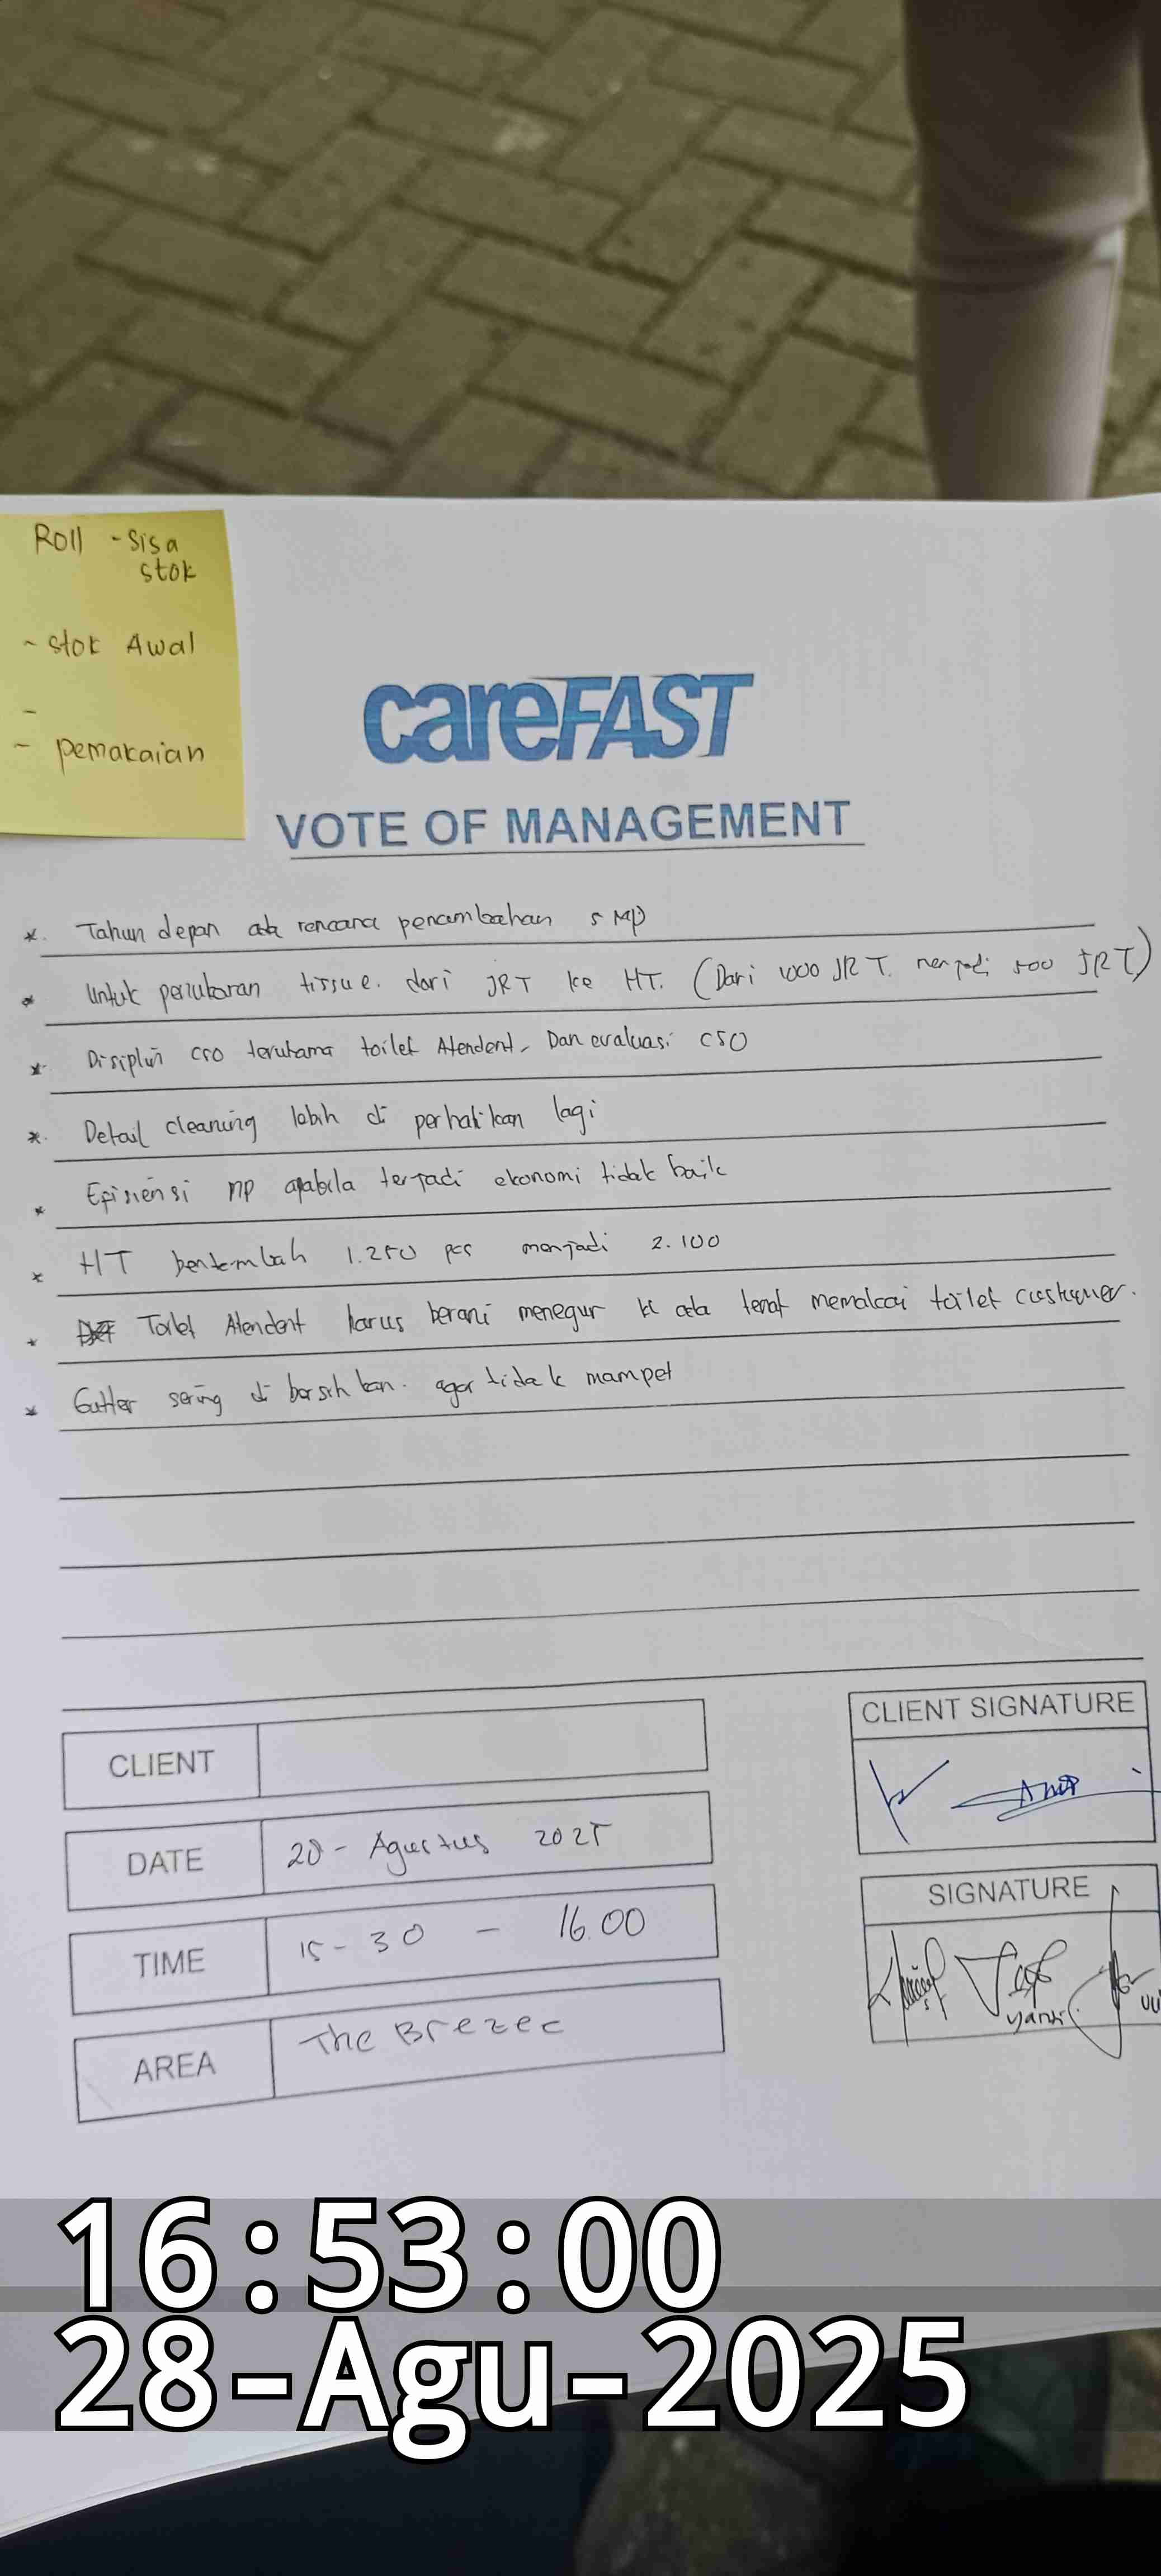 Roll - Sisa
stok
- Stok Awal
-
- pemakaian
careFAST
VOTE OF MANAGEMENT
* Tahun depan ada rencana penambahan 5 MP
* Untuk perubahan tissue. dari JRT ke HT. (Dari 1000 JRT. menjadi 500 JRT)
* Disiplin CSO terutama toilet Atendent, Dan evaluasi CSO
* Detail cleaning lebih di perhatikan lagi
* Efisiensi MP apabila terjadi ekonomi tidak baik
* HT bertambah 1.250 pcs menjadi 2.100
* Toilet Atendent harus berani menegur ada tenat memakai toilet customer.
* Gutter sering di bersihkan. agar tidak mampet
CLIENT
CLIENT SIGNATURE
DATE 28 - Agustus 2025
TIME 15-30 - 16.00
SIGNATURE
yanti
AREA The Brezee
16:53:00
28-Agu-2025